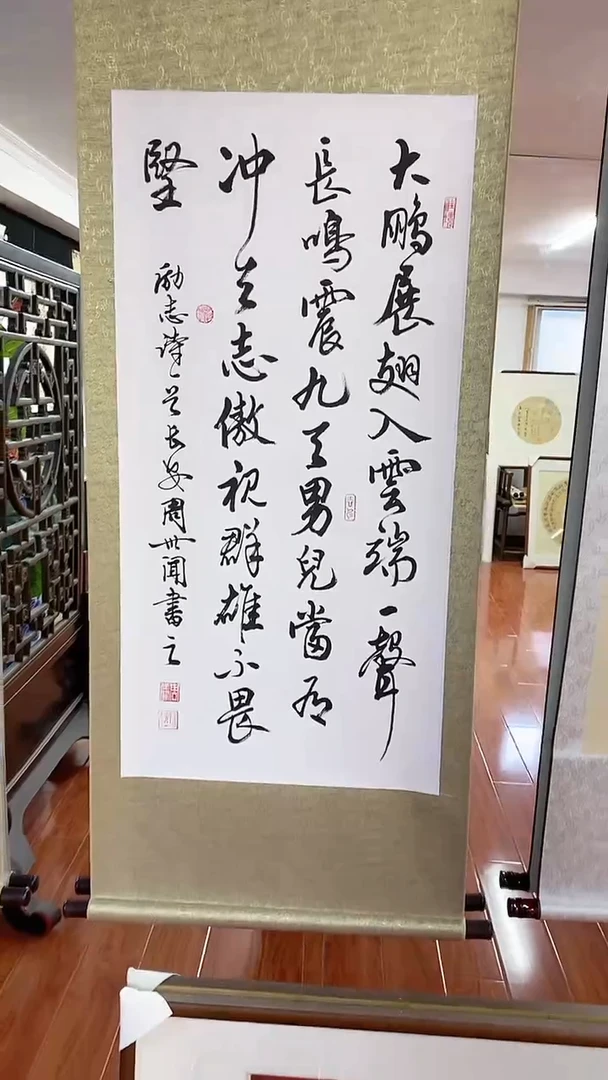 大鵬展翅入雲端一聲
長鳴震九天男兒當有
冲天志傲视群雄不畏
堅
励志诗一首长安周世聞書之